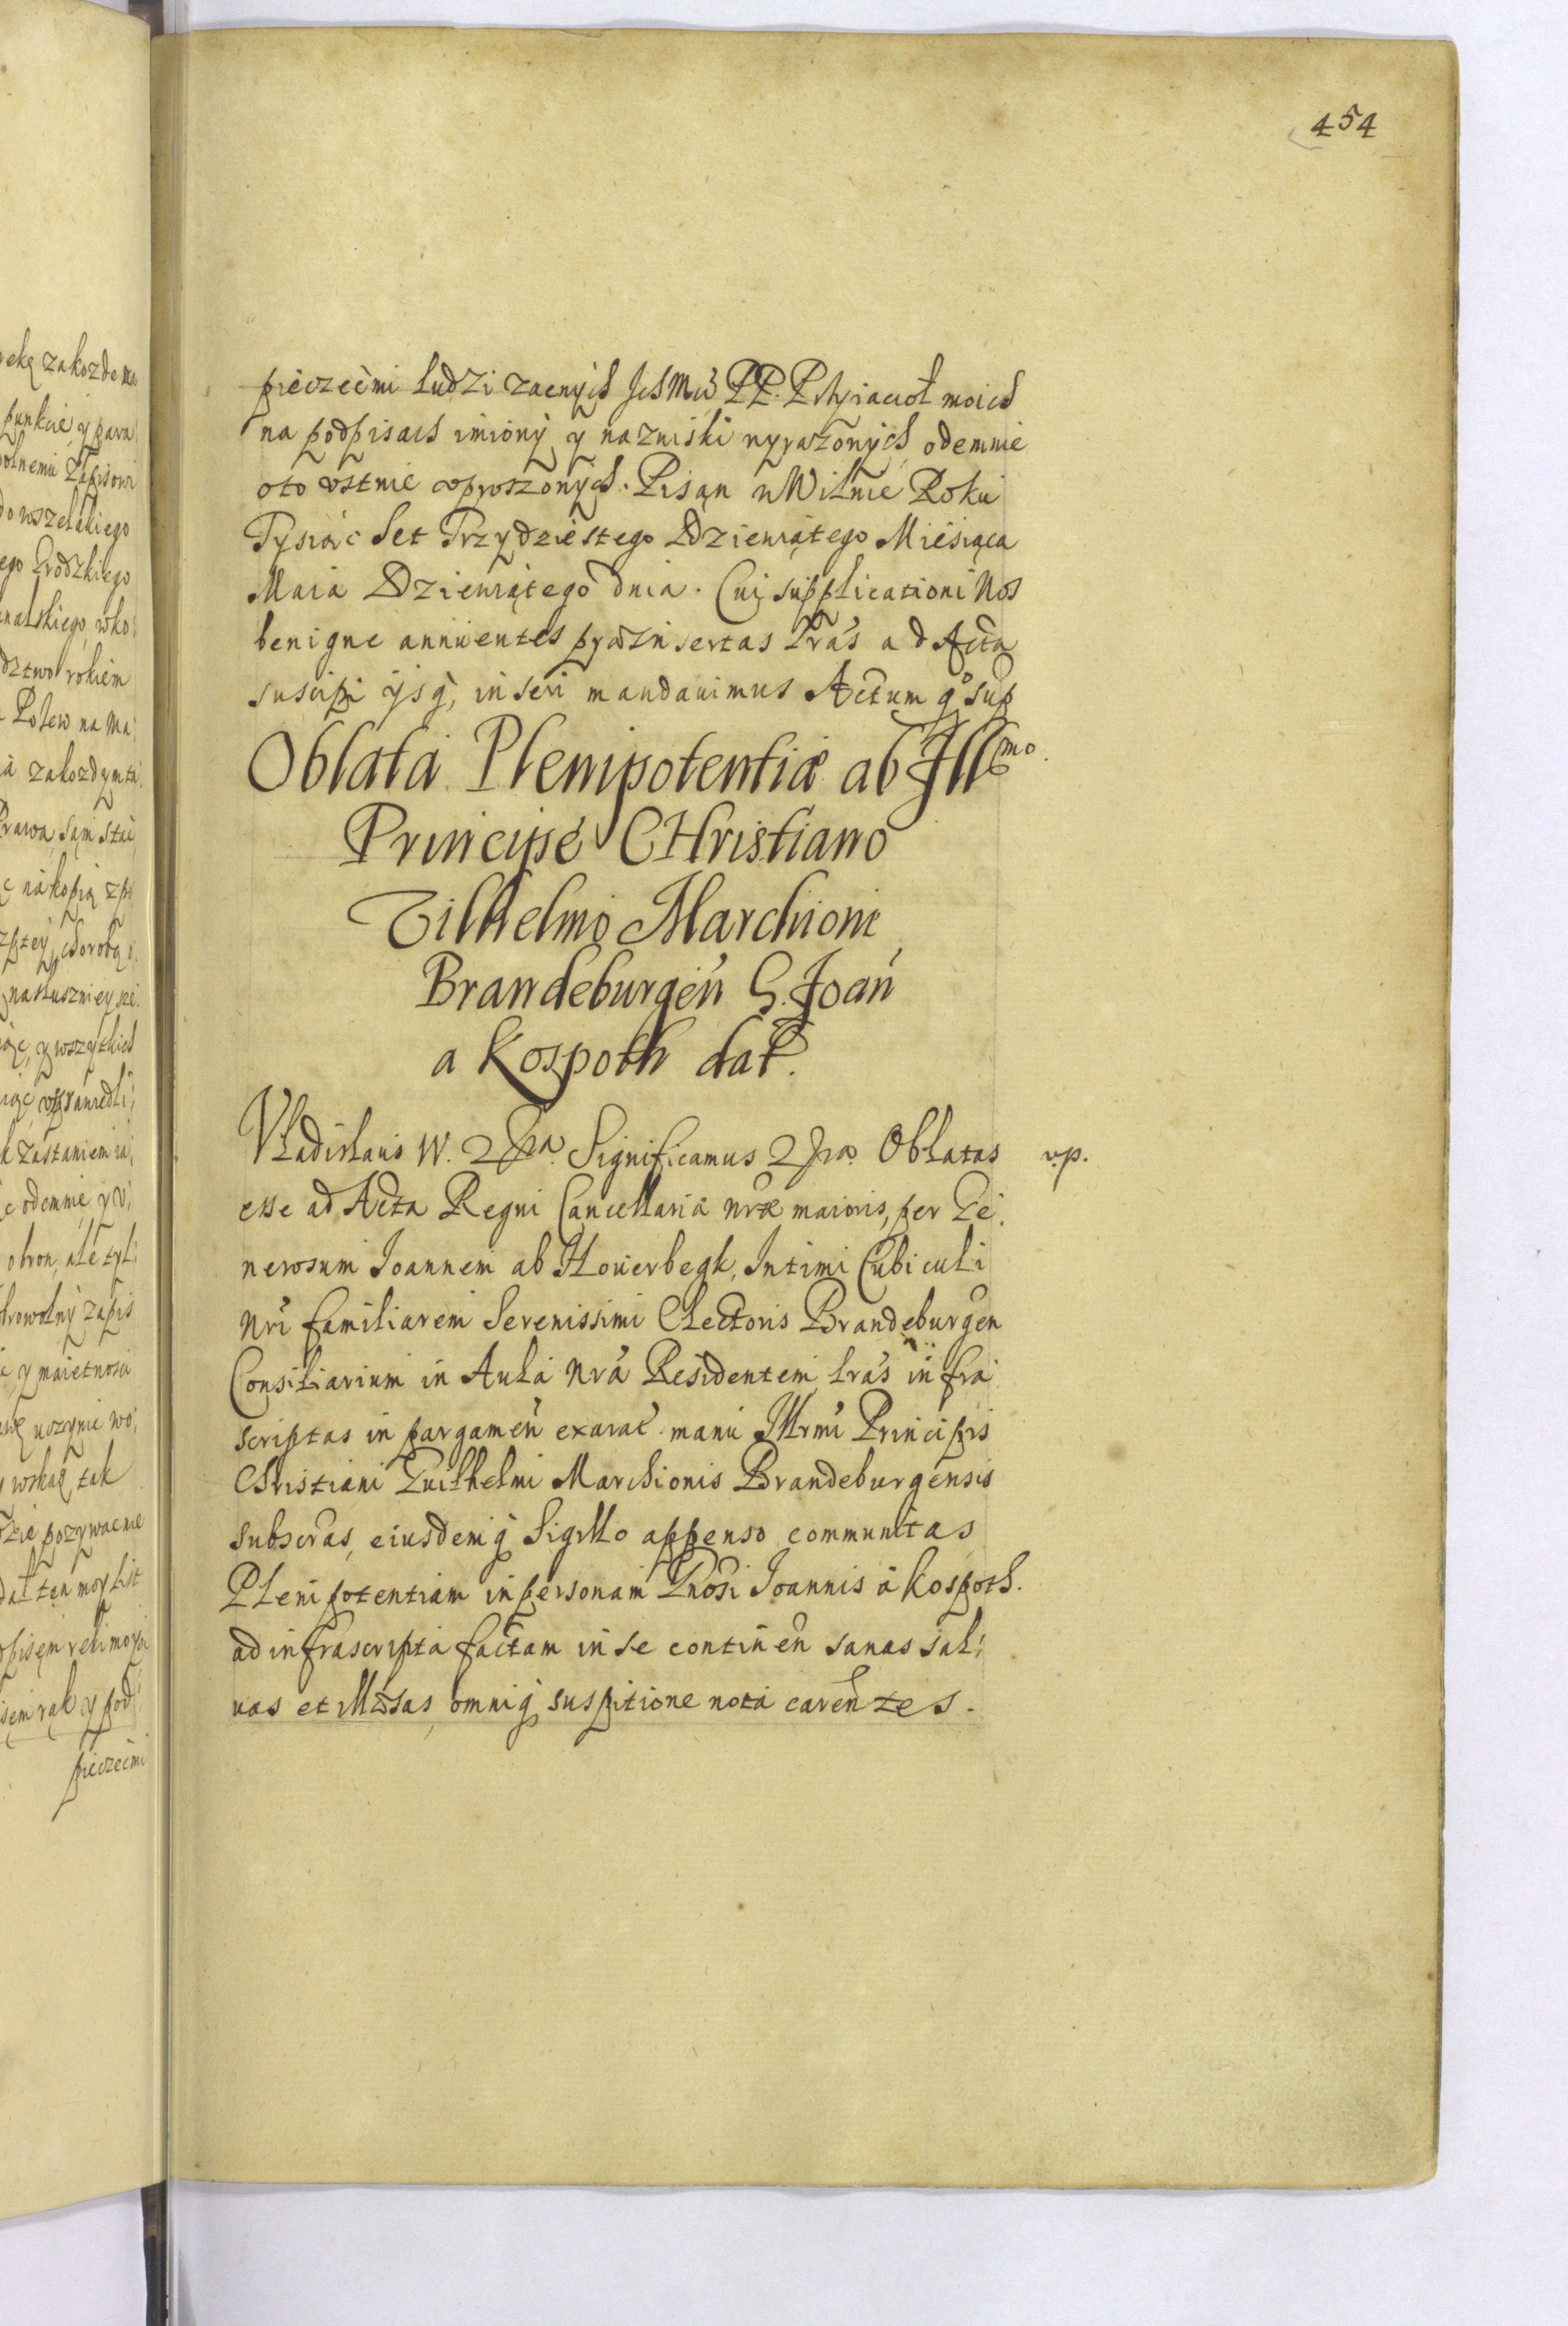 454
pieczećmi ludzi zacnych Jch Mci PP. Przyiacioł moich
na podpisach imiony y nazwiski wyrażonych odemnie
oto ustnie uproszonych. Pisan w Wilnie Roku
Tysiąc Set Trzydziestego Dziewiątego Miesiąca
Maia Dziewiątego dnia. Cui supplicationi Nos
benigne annuentes præinsertas Lrás ad Acta
suscipi ijsq, inseri mandauimus Actum q° sup
Oblata Plenipotentiæ ab Illmo.
Principe CHristiano
Vilhelmo Marchioni
Brandeburgeń G. Joań
a Kospoth dat.
Vladislaus W. Significamus Oblatas v.p.
esse ad Acta Regni Cancellaria nræ maioris, per Ge,
nerosum Joannem ab Houerbegk, Intimi Cubiculi
Nri familiarem Serenissimi Electoris Brandeburgen
Consiliarium in Aula Nrá Residentem lrás infra
scriptas in pargameń exarat. manu Illrmi Principis
Christiani Guilhelmi Marchionis Brandeburgensis
subscras, eiusdemq Sigillo appenso communitas
Plenipotentiam in personam Gnosi Joannis á Kospoth.
ad infrascripta factam in se contineń sanas sal,
uas et illæsas, omniq suspitione nota carentes.
ekę zakożde
punkcie y para
olnemu Zapisowi
do wszelakiego
ego Grodzkiego
nalskiego, wko
dztwo rokiem
Polew na Ma
ia zakozdym ta
Prawa, sam stać
c nakopią
chorobą
nasłuszniey sze
ąc, y wszytkich
k zastaniem ia
c odemnie y v
obron, ale tyl
browolny zapis
y maietnosci
uczynie wo
wskaz tak
zie pozywacnie
dał ten moy List
pisem ręk y pod
pieczećmi